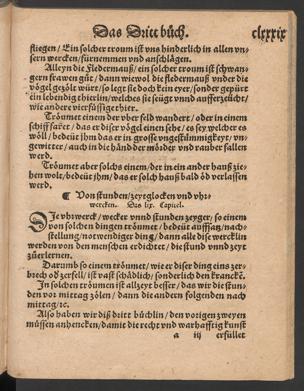 Das Dritt bůch. clxxix
fliegen / Ein solcher troum ist vns hinderlich in allen vn-
sern wercken / fürnemmen vnd anschlägen.
Alleyn die fledermauß / ein solcher traum ist schwan-
gern frawen gůt / dann wiewol die fledermauß vnder die
vögel gezölt würt / so legt sie doch kein eyer / sonder gepürt
ein lebendig thierlin / welches sie seügt vnnd aufferzeücht /
wie ander vierfüssige thier.
Tröumet einem der vber feld wandert / oder in einem
schiff faret / das er diser vögel einen sehe / es sey welcher es
wöll / bedeüt ihm das er in grosse vngestümmigkeyt / vn-
gewitter / auch in die händ der mörder vnd rauber fallen
werd.
Tröumet aber solchs einem / der in ein ander hauß zie-
hen wolt / bedeüt jhm / das er solch hauß bald öd verlassen
werd.
¶ Von stunden / zeyrglocken vnd vhr-
wercken. Das lx. Capitel.
Die vhrwerck / wecker vnnd stunden zeyger / so einem
von solchen dingen tröumet / bedeüt auffsatz / nach-
stellung / notwendiger ding / dann alle dise wercklin
werden von den menschen erdichtet / die stund vnnd zeyt
zůerlernen.
Darumb so einem tröumet / wie er diser ding eins zer-
brech od zerfell / ist vast schädlich / sonderlich den krancken.
In solchen tröumen ist allzeyt besser / das wir die stun-
den vor mittag zölen / dann die andern folgenden nach
mittag / ꝛc.
Also haben wir diß dritt büchlin / den vorigen zweyen
müssen anhencken / damit die recht vnd warhafftig kunst
a iij erfüllet